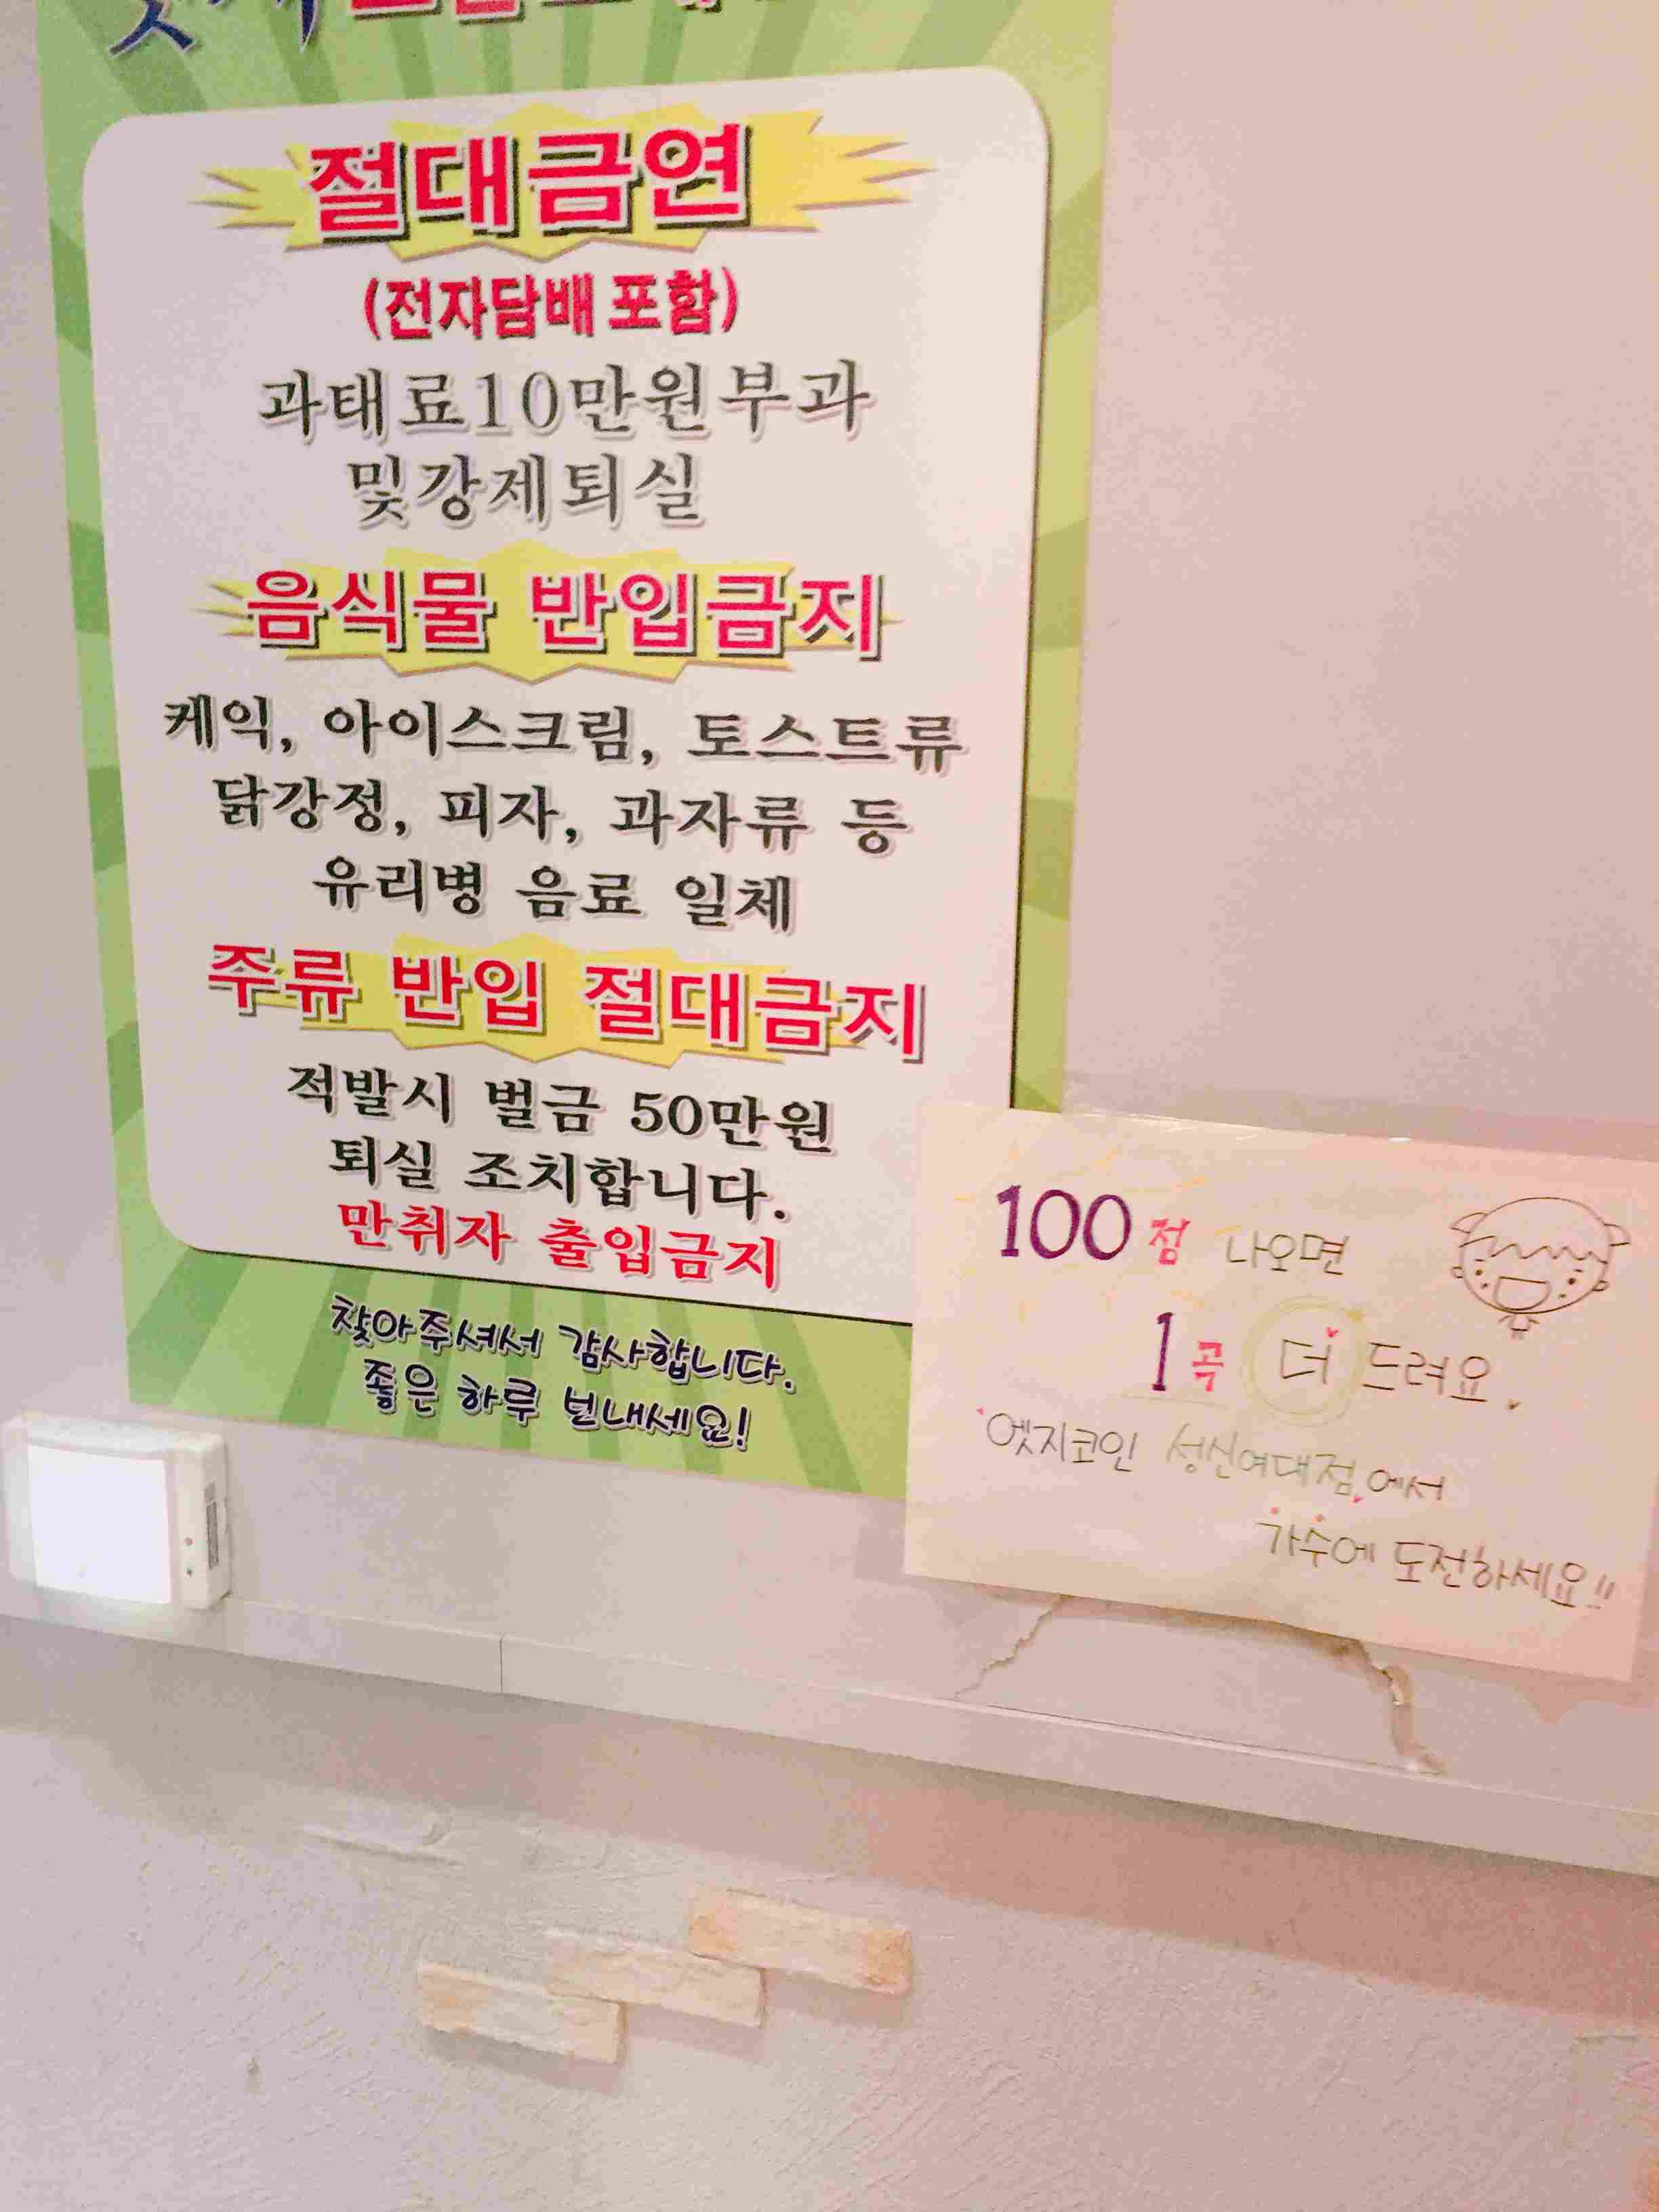 절대금연
(전자담배 포함)
과태료10만원부과
및강제퇴실
음식물 반입금지
케익, 아이스크림, 토스트류
닭강정, 피자, 과자류 등
유리병 음료 일체
주류 반입 절대금지
적발시 벌금 50만원
퇴실 조치합니다.
만취자 출입금지
찾아주셔서 감사합니다.
좋은 하루 보내세요!
100점 나오면
1곡 더 드려요.
엣지코인 성신여대점에서
가수에 도전하세요!!